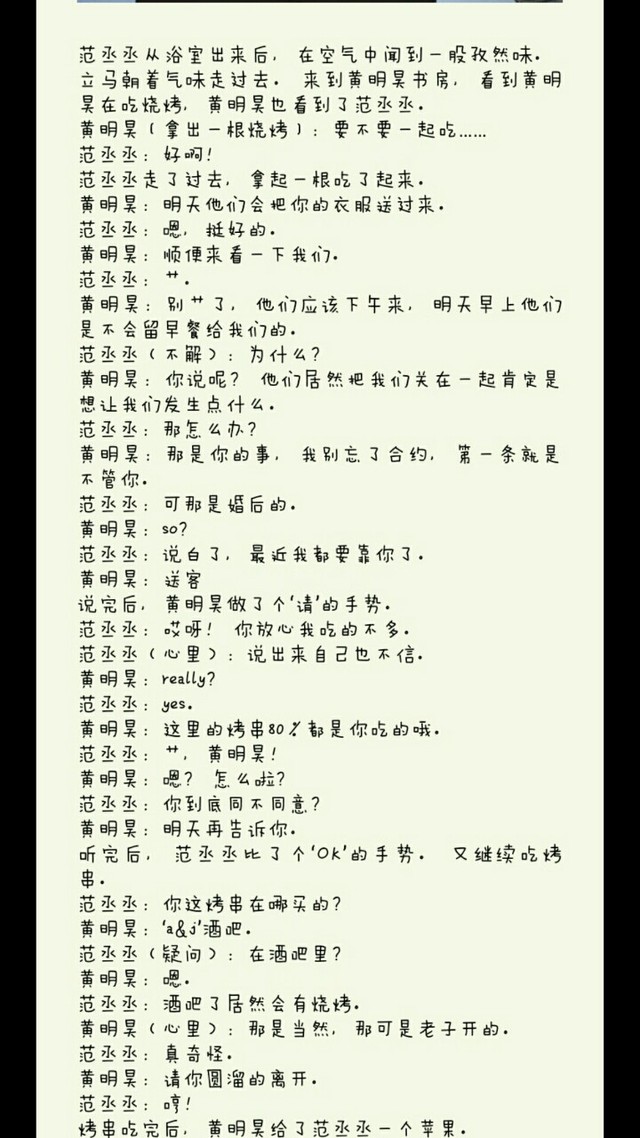 范丞丞从浴室出来后, 在空气中闻到一股孜然味.
立马朝着气味走过去. 来到黄明昊书房, 看到黄明
昊在吃烧烤, 黄明昊也看到了范丞丞.
黄明昊(拿出一根烧烤): 要不要一起吃……
范丞丞: 好啊!
范丞丞走了过去, 拿起一根吃了起来.
黄明昊: 明天他们会把你的衣服送过来.
范丞丞: 嗯, 挺好的.
黄明昊: 顺便来看一下我们.
范丞丞: 艹.
黄明昊: 别艹了, 他们应该下午来, 明天早上他们
是不会留早餐给我们的.
范丞丞(不解): 为什么?
黄明昊: 你说呢? 他们居然把我们关在一起肯定是
想让我们发生点什么.
范丞丞: 那怎么办?
黄明昊: 那是你的事, 我别忘了合约, 第一条就是
不管你.
范丞丞: 可那是婚后的.
黄明昊: so?
范丞丞: 说白了, 最近我都要靠你了.
黄明昊: 送客
说完后, 黄明昊做了个'请'的手势.
范丞丞: 哎呀! 你放心我吃的不多.
范丞丞(心里): 说出来自己也不信.
黄明昊: really?
范丞丞: yes.
黄明昊: 这里的烤串80%都是你吃的哦.
范丞丞: 艹, 黄明昊!
黄明昊: 嗯? 怎么啦?
范丞丞: 你到底同不同意?
黄明昊: 明天再告诉你.
听完后, 范丞丞比了个'OK'的手势. 又继续吃烤
串.
范丞丞: 你这烤串在哪买的?
黄明昊: 'a&j'酒吧.
范丞丞(疑问): 在酒吧里?
黄明昊: 嗯.
范丞丞: 酒吧了居然会有烧烤.
黄明昊(心里): 那是当然, 那可是老子开的.
范丞丞: 真奇怪.
黄明昊: 请你圆溜的离开.
范丞丞: 哼!
烤串吃完后, 黄明昊给了范丞丞一个苹果.